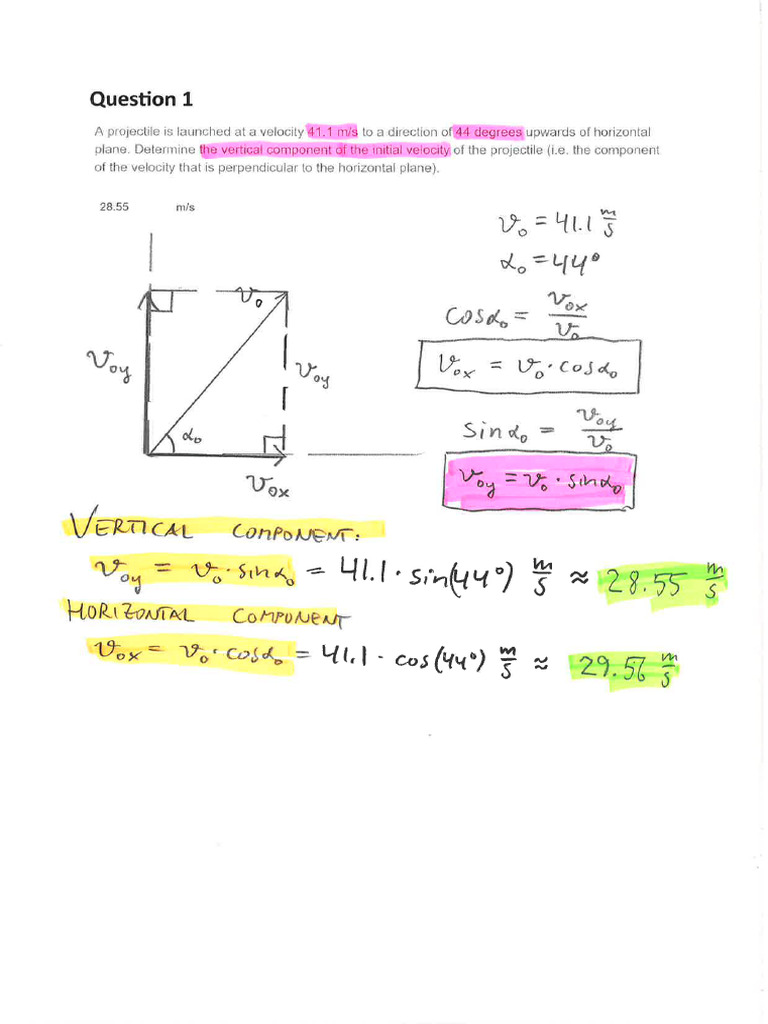 Question 1
A projectile is launched at a velocity 41.1 m/s to a direction of 44 degrees upwards of horizontal
plane. Determine the vertical component of the initial velocity of the projectile (i.e. the component
of the velocity that is perpendicular to the horizontal plane).
28.55 m/s
v₀ = 41.1 m/s
α₀ = 44°
cosα₀ = v₀ₓ/v₀
v₀ₓ = v₀ · cosα₀
sinα₀ = v₀y/v₀
v₀y = v₀ · sinα₀
v₀
v₀y
v₀y
α₀
v₀ₓ
VERTICAL COMPONENT:
v₀y = v₀ · sinα₀ = 41.1 · sin(44°) m/s ≈ 28.55 m/s
HORIZONTAL COMPONENT
v₀ₓ = v₀ · cosα₀ = 41.1 · cos(44°) m/s ≈ 29.56 m/s